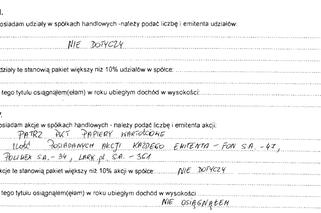 osiadam udziały w spółkach handlowych -należy podać liczbę i emitenta udziałów:
NIE DOTYCZY
działy te stanowią pakiet większy niż 10% udziałów w spółce:
tego tytułu osiągnąłem(ełam) w roku ubiegłym dochód w wysokości:
osiadam akcje w spółkach handlowych -należy podać liczbę i emitenta akcji:
PATRZ PKT PAPIERY WARTOŚCIOWE
ILOŚĆ POSIADANYCH AKCJI KAŻDEGO EMITENTA - FON S.A. - 47,
S.A. - 34, LARK.pl S.A. - 361
kcje te stanowią pakiet większy niż 10% akcji w spółce: NIE DOTYCZY
tego tytułu osiągnąłem(ełam) w roku ubiegłym dochód w wysokości
NIE OSIĄGNĄŁEM